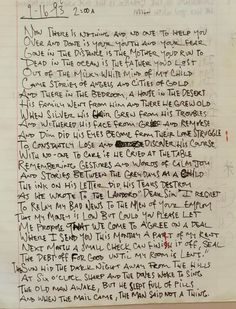 1-16-93 2:00A
NOW THERE IS NOTHING AND NO ONE TO HELP YOU
OVER AND DONE IS YOUR YOUTH AND YOUR FEAR
GONE IN THE DISTANCE IS THE MOTHER YOU'D RUN
DEAD IN THE OCEAN IS THE FATHER YOU'D LOST
OUT OF THE MILKY WHITE MIND OF MY CHILD
CAME STORIES OF ANGELS AND CITIES OF GOLD
AND THERE IN THE BEDROOM, A HOUSE IN THE DESERT
HIS FAMILY WENT FROM HIM AND THERE HE GREW OLD
WHEN SILVER HIS HAIR GREW FROM HIS TROUBLES
AND WITHERED HIS FACE FROM GRIEF AND REMORSE
AND DIM DID HIS EYES BECOME FROM THEIR LONE STRUGGLE
TO CONSTANTLY LOSE AND DISCOVER HIS COURSE
WITH NO ONE TO CARE IF HE CRIED AT THE TABLE
REMEMBERING GESTURES AND WORDS OF
AND STORIES BETWEEN THE GREY DAYS AS A CHILD
THE INK ON HIS LETTER, DID HIS TEARS DESTROY
AS HE WROTE TO THE LANDLORD "DEAR SIR I REGRET
TO RELAY MY BAD NEWS TO THE MEN OF YOUR EMPLOY
THAT MY MONEY IS LOW BUT COULD YOU PLEASE LET
ME PROPOSE THAT WE COME TO AGREE ON A DEAL
WHERE I SEND YOU THIS MONTH A PART OF MY RENT
NEXT MONTH A SMALL CHECK CAN FINISH IT OFF, SEAL
THE DEBT OFF FOR GOOD UNTIL MY ROOM IS LENT."
SUN HID THE DARK NIGHT AWAY FROM THE HILLS
AT SIX O'CLOCK SHARP AND THE DOVES WOKE TO SING
THE OLD MAN AWAKE, BUT HE SLEPT FULL OF PILLS
AND WHEN THE MAIL CAME, THE MAN SAID NOT A THING.